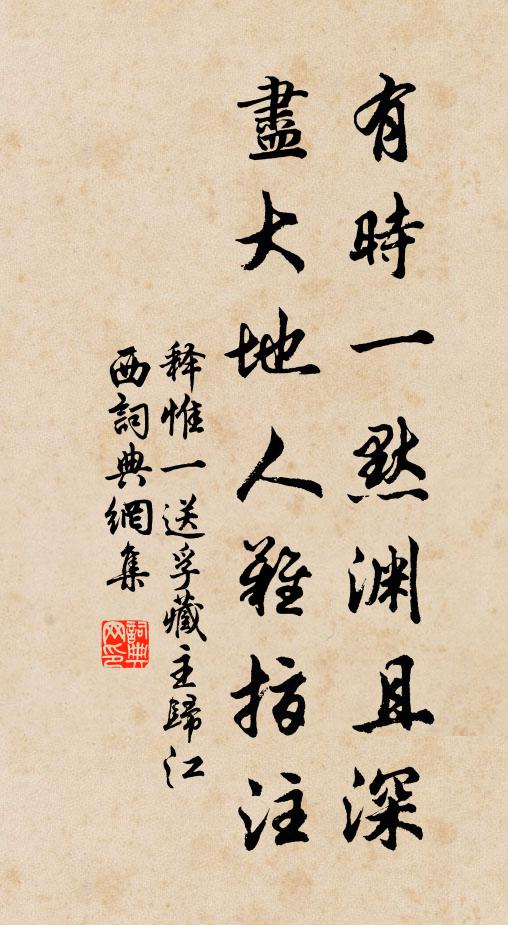 有時一默淵且深
盡大地人難指注
释惟一送孚藏主歸江
西詞典網集
詞典
网印